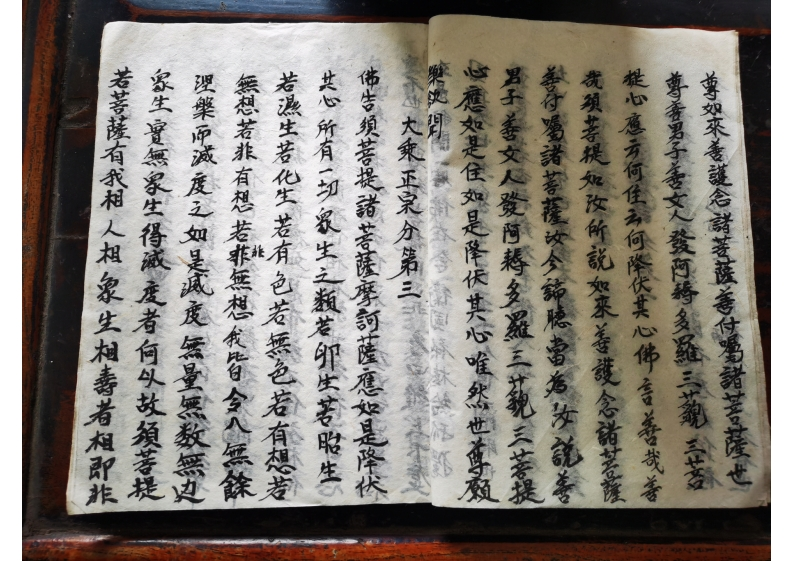 尊如來善護念諸菩薩善付囑諸菩薩世
尊善男子善女人發阿耨多羅三藐三菩
提心應云何住云何降伏其心佛言善哉善
哉須菩提如汝所說如來善護念諸菩薩
善付囑諸菩薩汝今諦聽當為汝說善
男子善女人發阿耨多羅三藐三菩提
心應如是住如是降伏其心唯然世尊願
樂欲聞
大乘正宗分第三
佛告須菩提諸菩薩摩訶薩應如是降伏
其心所有一切眾生之類若卵生若胎生
若濕生若化生若有色若無色若有想若
無想若非有想若非非無想我皆令入無餘
涅槃而滅度之如是滅度無量無數無边
眾生實無眾生得滅度者何以故須菩提
若菩薩有我相人相眾生相壽者相即非